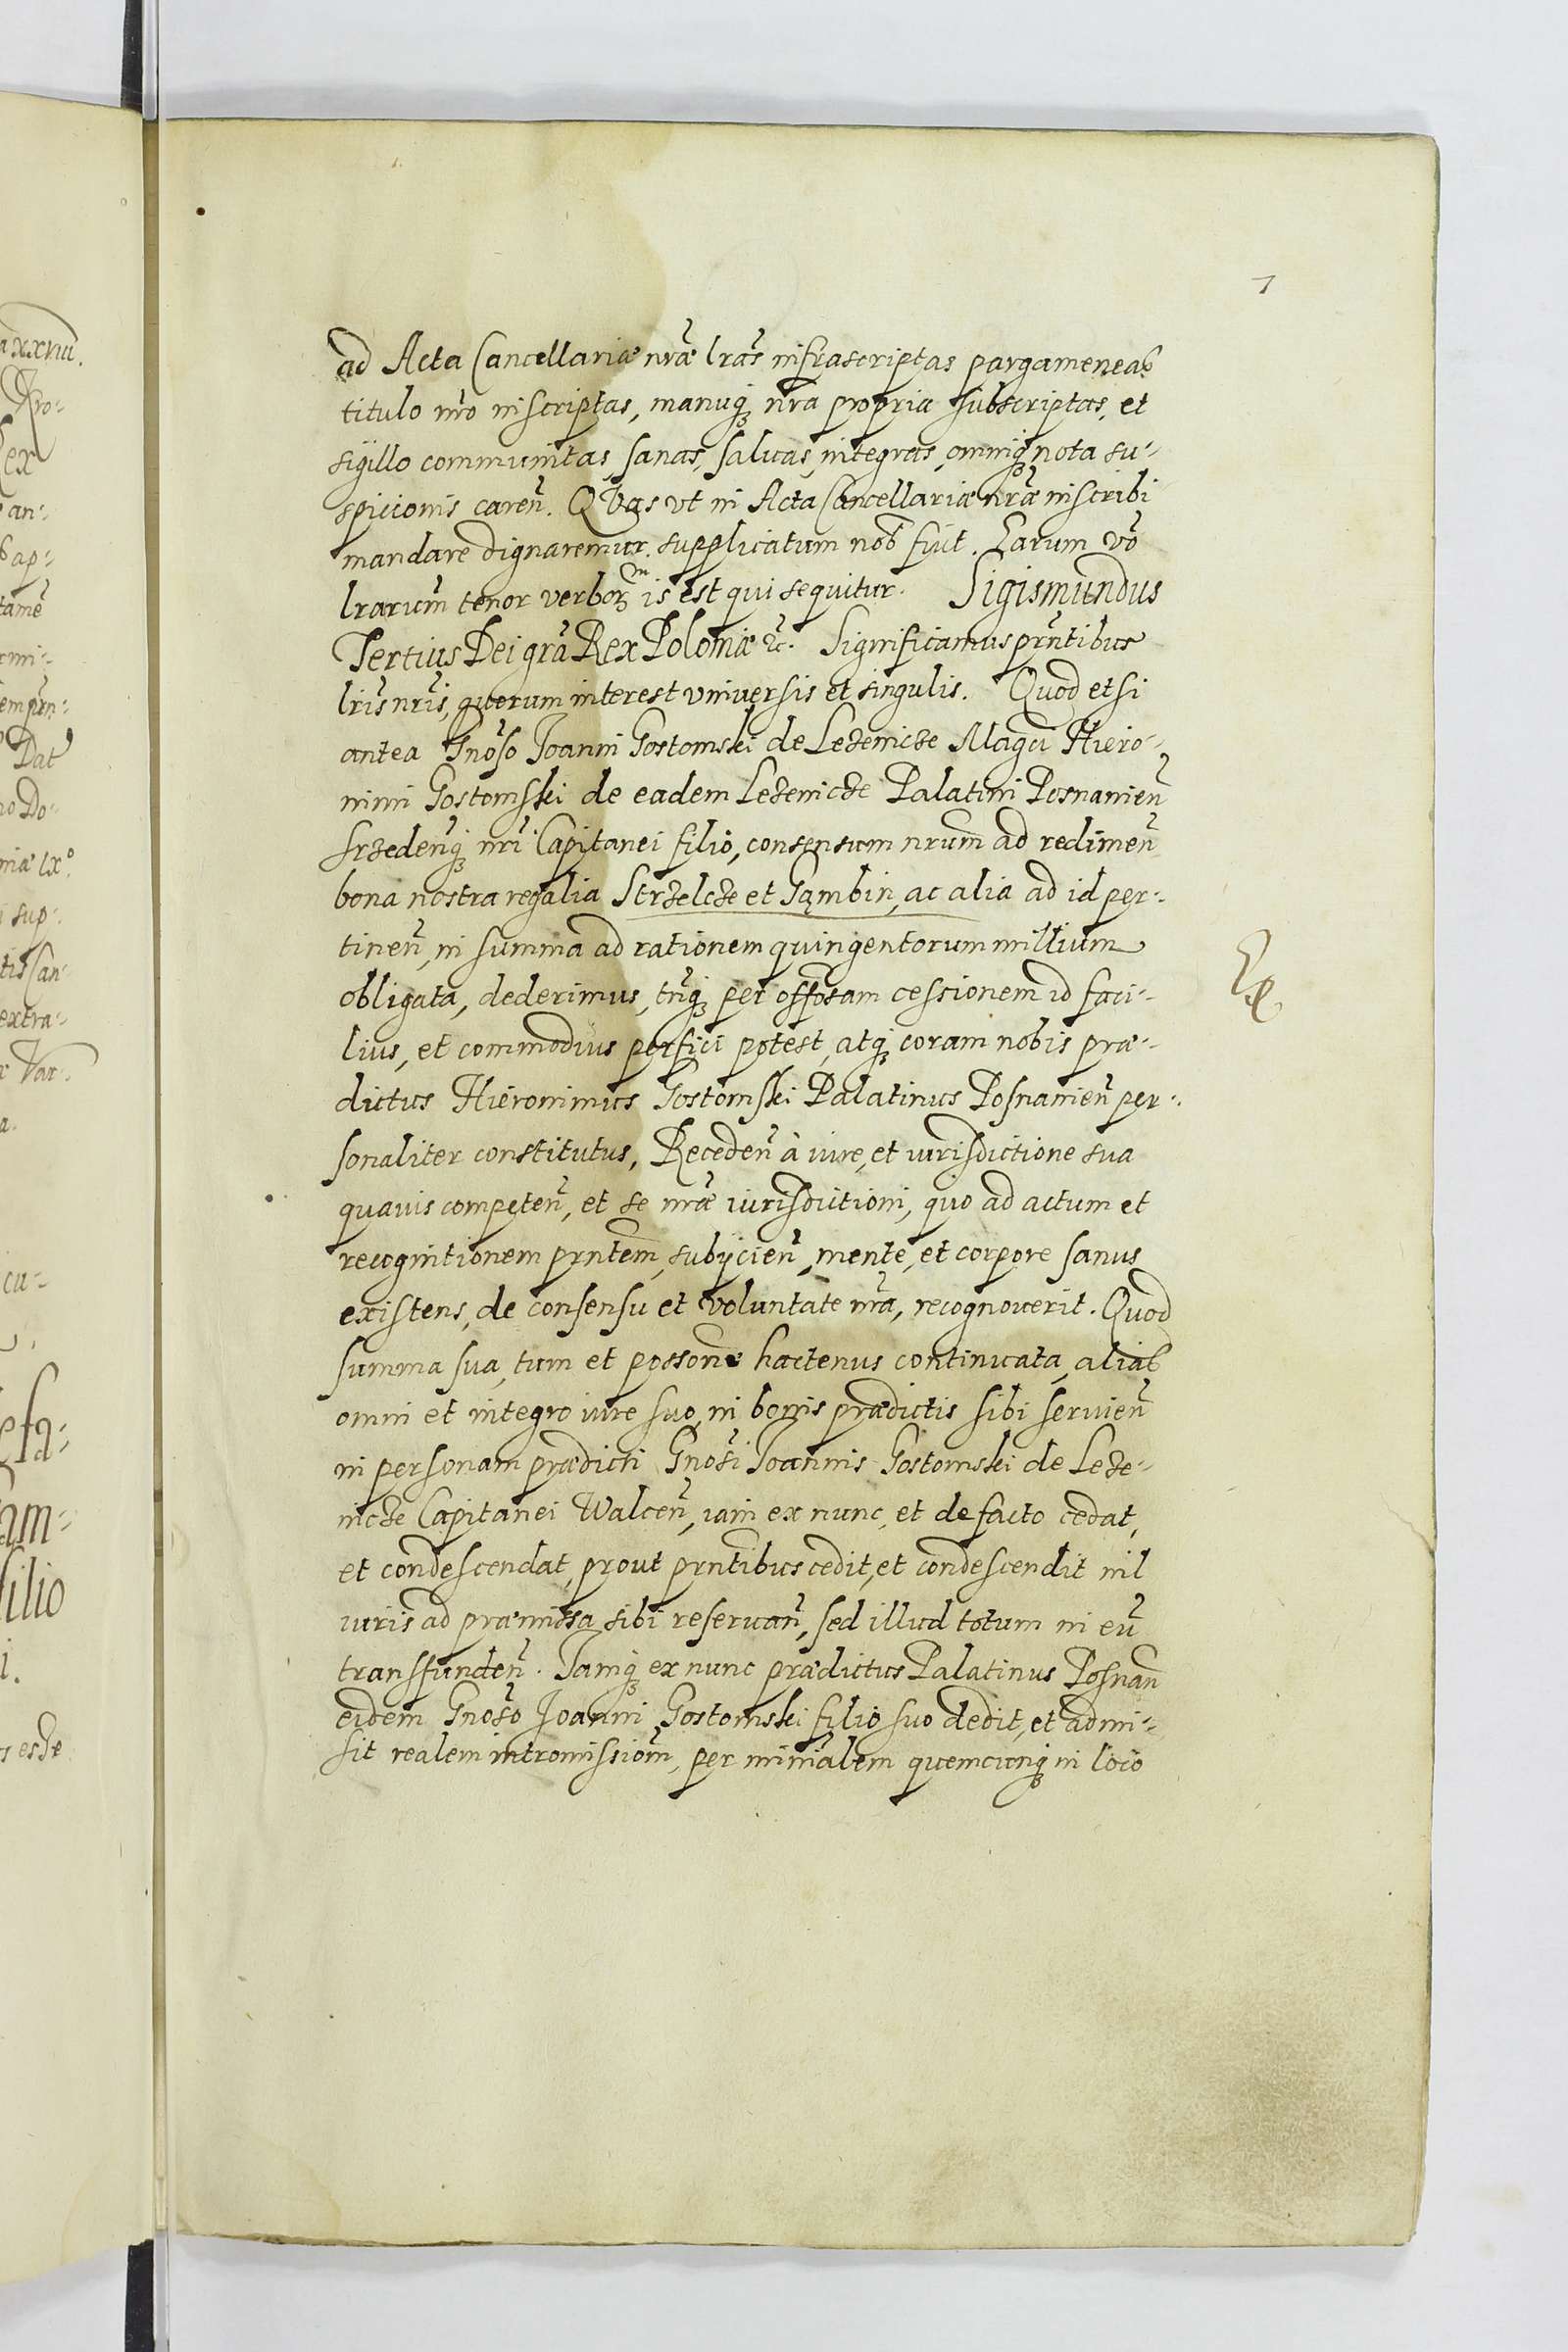 7
ad Acta Cancellariæ nr̃æ lrãs infrascriptas pargameneas
titulo nr̃o inscriptas, manuq; nr̃a propria subscriptas, et
sigillo communitas, sanas, saluas, integras, omniq; nota su-
spicionis careñ. Quas vt in Acta Cancellariæ nr̃æ inscribi
mandare dignaremur, supplicatum nob̃ fuit. Earum võ
lrarum tenor verborum is est qui sequitur. Sigismundus
Tertius Dei grã Rex Poloniæ &c. Significamus prñtibus
lr̃is nr̃is, quorum interest vniuersis et singulis. Quod etsi
antea Gnõso Joanni Gostomski de Lezenicze Magci Hiero-
nimi Gostomski de eadem Lezenicze Palatini Posnanieñ
Srzedeñq; nr̃i Capitanei filio, consensum nrum ad redimeñ
bona nostra regalia Strzelcze et Gąmbin, ac alia ad id per-
tineñ, in summa ad rationem quingentorum millium
obligata, dederimus, tñq; per offosam cessionem id faci-
lius, et commodius perfici potest, atq; coram nobis præ-
dictus Hieronimus Gostomski Palatinus Posnanieñ per-
sonaliter constitutus, Recedeñ à iure, et iurisdictione sua
quauis competeñ, et se nr̃æ iurisdictioni, quo ad actum et
recognitionem prñtem, subijcieñ, mente, et corpore sanus
existens, de consensu et voluntate nr̃a, recognouerit. Quod
summa sua, tum et possone hactenus continuata, alias
omni et integro iure suo, in bonis prædictis sibi seruieñ
in personam prædicti Gnõsi Joannis Gostomski de Leze-
nicze Capitanei Walceñ, iam ex nunc, et de facto cedat,
et condescendat, prout prñtibus cedit, et condescendit nil
iuris ad præmissa sibi reseruañ, sed illud totum in eũ
transfundeñ. Jamq; ex nunc prædictus Palatinus Posnañ
eidem Gnõso Joanni Gostomski filio suo dedit, et admi-
sit realem intromissiom̃, per ministalem quemcunq; in loco